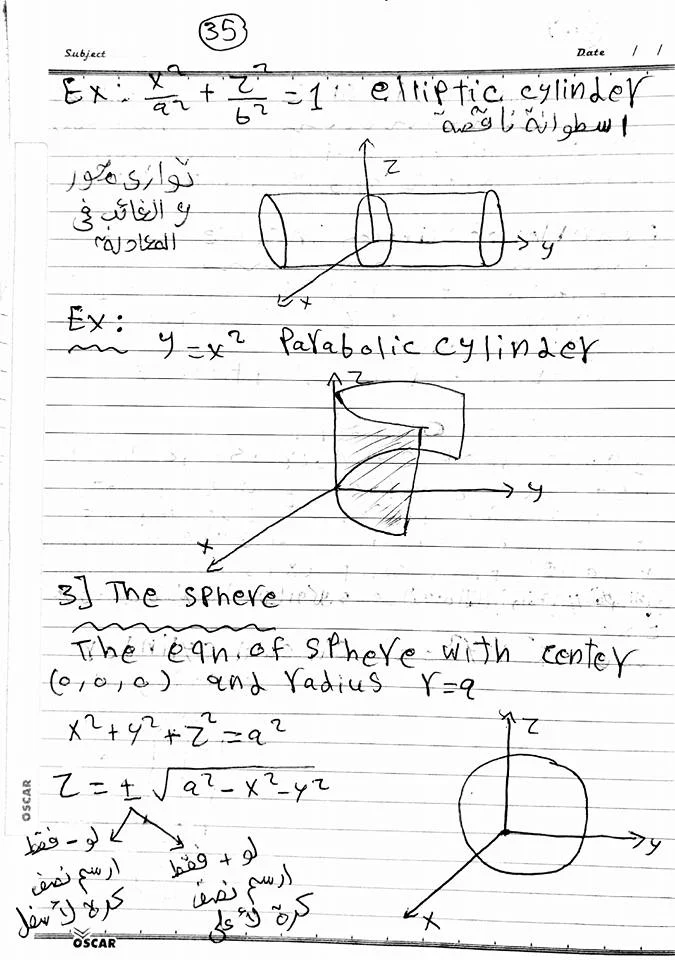 35
Subject
Date / /
Ex: x²/a² + z²/b² = 1: elliptic cylinder
اسطوانة ناقصة
توازى محور
y الغائب فى
المعادلة
z
y
x
Ex:
y = x² Parabolic cylinder
z
y
x
3] The sphere
The eqn. of sphere with center
(0,0,0) and radius r=a
x² + y² + z² = a²
z = ± √(a² - x² - y²)
لو - فقط
ارسم نصف
كرة لأسفل
لو + فقط
ارسم نصف
كرة لأعلى
z
y
x
OSCAR
OSCAR